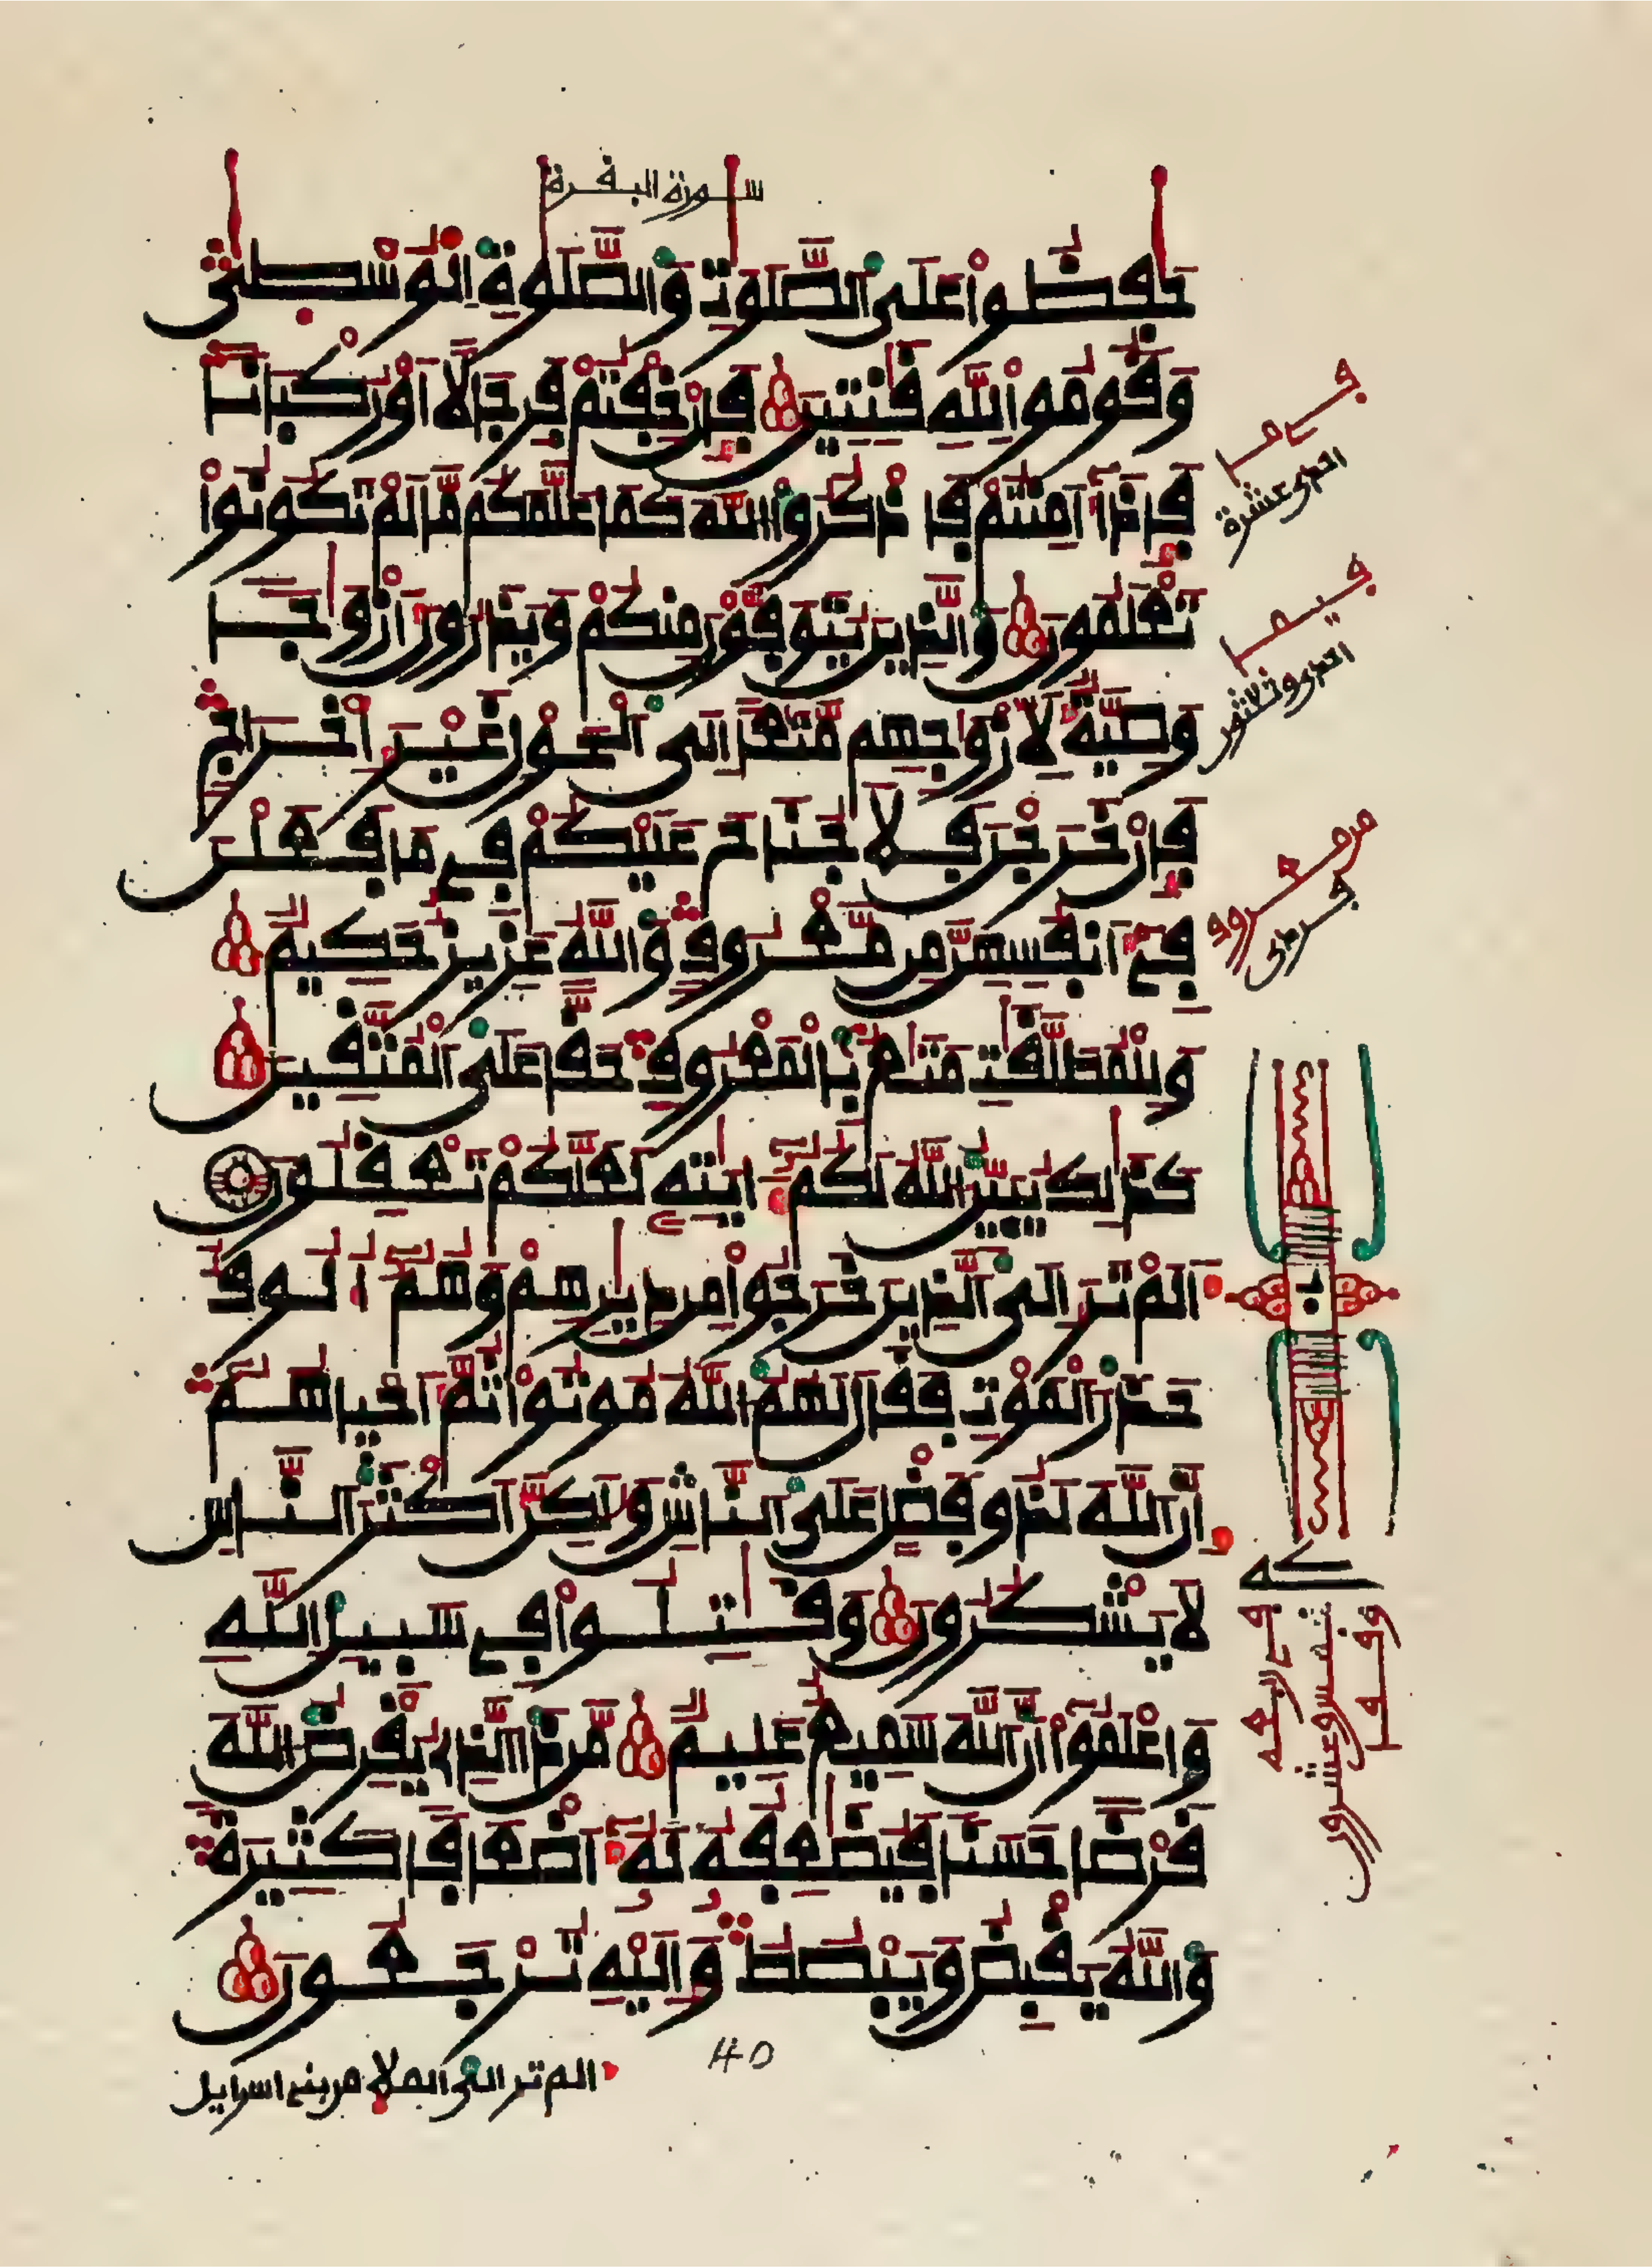 سورة البقرة
حَٰفِظُوا۟ عَلَى ٱلصَّلَوَٰتِ وَٱلصَّلَوٰةِ ٱلْوُسْطَىٰ
وَقُومُوا۟ لِلَّهِ قَٰنِتِينَ فَإِنْ خِفْتُمْ فَرِجَالًا أَوْ رُكْبَانًا
فَإِذَا أَمِنتُمْ فَاذْكُرُوا۟ ٱللَّهَ كَمَا عَلَّمَكُم مَّا لَمْ تَكُونُوا۟
تَعْلَمُونَ وَٱلَّذِينَ يُتَوَفَّوْنَ مِنكُمْ وَيَذَرُونَ أَزْوَٰجًا
وَصِيَّةٌ لِّأَزْوَٰجِهِم مَّتَٰعًا إِلَى ٱلْحَوْلِ غَيْرَ إِخْرَاجٍ
فَإِنْ خَرَجْنَ فَلَا جُنَاحَ عَلَيْكُمْ فِى مَا فَعَلْنَ
فِى أَنفُسِهِنَّ مِن مَّعْرُوفٍ وَٱللَّهُ عَزِيزٌ حَكِيمٌ
وَلِلْمُطَلَّقَٰتِ مَتَٰعٌ بِٱلْمَعْرُوفِ حَقًّا عَلَى ٱلْمُتَّقِينَ
كَذَٰلِكَ يُبَيِّنُ ٱللَّهُ لَكُمْ ءَايَٰتِهِ لَعَلَّكُمْ تَعْقِلُونَ
أَلَمْ تَرَ إِلَى ٱلَّذِينَ خَرَجُوا۟ مِن دِيَٰرِهِمْ وَهُمْ أُلُوفٌ
حَذَرَ ٱلْمَوْتِ فَقَالَ لَهُمُ ٱللَّهُ مُوتُوا۟ ثُمَّ أَحْيَاهُمْ
إِنَّ ٱللَّهَ لَذُو فَضْلٍ عَلَى ٱلنَّاسِ وَلَٰكِنَّ أَكْثَرَ ٱلنَّاسِ
لَا يَشْكُرُونَ وَقَٰتِلُوا۟ فِى سَبِيلِ ٱللَّهِ
وَٱعْلَمُوا۟ أَنَّ ٱللَّهَ سَمِيعٌ عَلِيمٌ مَّن ذَا ٱلَّذِى يُقْرِضُ ٱللَّهَ
قَرْضًا حَسَنًا فَيُضَٰعِفُهُ لَهُ أَضْعَافًا كَثِيرَةً
وَٱللَّهُ يَقْبِضُ وَيَبْصُطُ وَإِلَيْهِ تُرْجَعُونَ
40
الم تر الى الملا من بنى اسرايل
في ما
احدى عشرة
فيما
احدى وثلاثون
من معروف